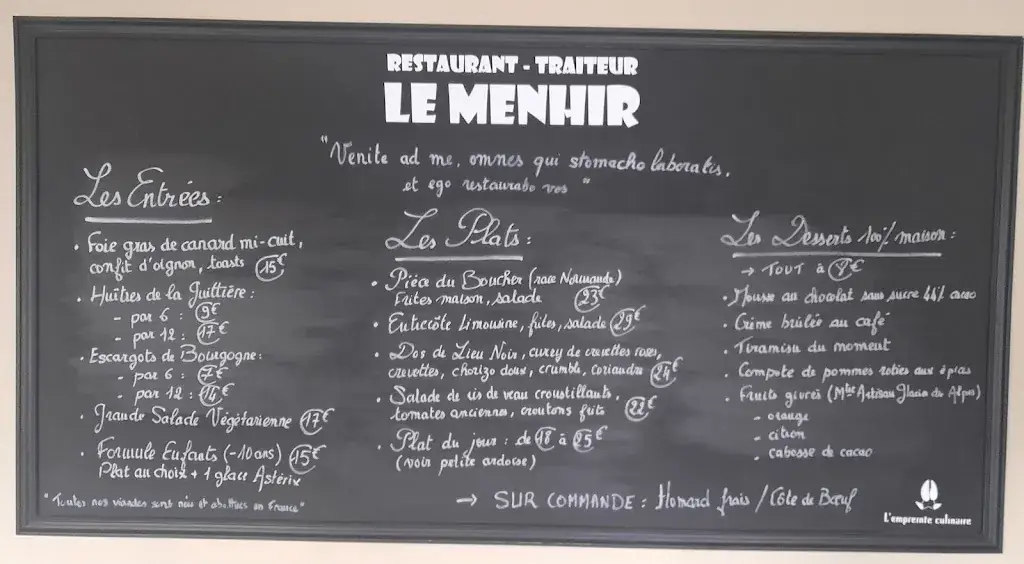 RESTAURANT - TRAITEUR
LE MENHIR
"Venite ad me, omnes qui stomacho laboratis,
et ego restaurabo vos"
Les Entrées :
• Foie gras de canard mi-cuit,
confit d'oignon, toasts 15€
• Huîtres de la Guittière :
- par 6 : 9€
- par 12 : 17€
• Escargots de Bourgogne :
- par 6 : 7€
- par 12 : 14€
• Grande Salade Végétarienne 17€
• Formule Enfants (-10 ans) 15€
Plat au choix + 1 glace Astérix
"Toutes nos viandes sont nées et abattues en France"
Les Plats :
• Pièce du Boucher (race Normande)
Frites maison, salade 23€
• Entrecôte Limousine, frites, salade 29€
• Dos de Lieu Noir, curry de crevettes roses,
crevettes, chorizo doux, crumble, coriandre 24€
• Salade de ris de veau croustillants,
tomates anciennes, croutons frits 22€
• Plat du jour : de 18 à 25€
(voir petite ardoise)
Les Desserts 100% maison :
→ TOUT à 9€
• Mousse au chocolat sans sucre 44% cacao
• Crème brûlée au café
• Tiramisu du moment
• Compote de pommes roties aux épices
• Fruits givrés (Mtre Artisan Glacier des Alpes)
- orange
- citron
- cabosse de cacao
→ SUR COMMANDE : Homard frais / Côte de Bœuf
L'empreinte culinaire